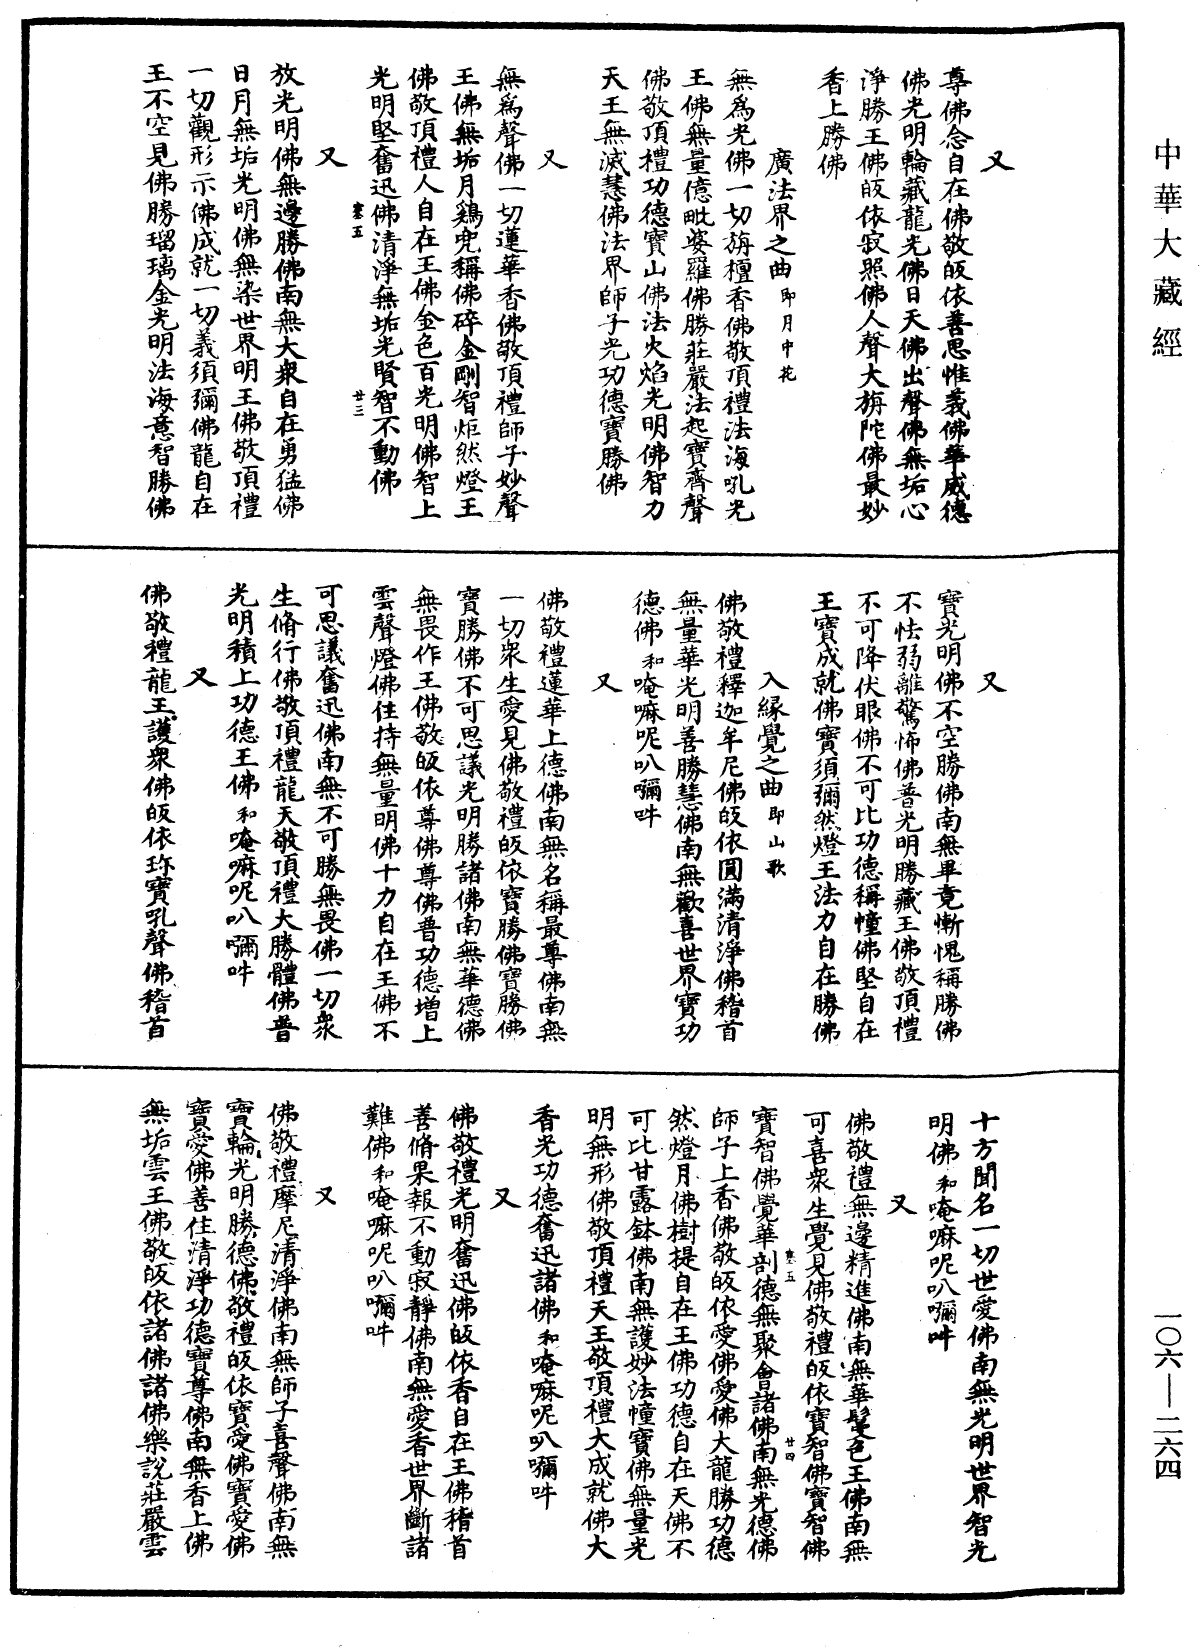 中華大藏經
尊佛念自在佛敬皈依善思惟義佛華威德
佛光明輪藏龍光佛日天佛出聲佛無垢心
淨勝王佛皈依寂照佛人聲大旃陀佛最妙
香上勝佛
又
廣法界之曲 即月中花
無爲光佛一切旃檀香佛敬頂禮法海吼光
王佛無量億毗婆羅佛勝莊嚴法起寶齊聲
佛敬頂禮功德寶山佛法火焰光明佛智力
天王無滅慧佛法界師子光功德寶勝佛
又
無爲聲佛一切蓮華香佛敬頂禮師子妙聲
王佛無垢月鷄兜稱佛碎金剛智炬然燈王
佛敬頂禮人自在王佛金色百光明佛智上
光明堅奮迅佛清淨無垢光賢智不動佛
塞五 廿三
又
放光明佛無邊勝佛南無大衆自在勇猛佛
日月無垢光明佛無染世界明王佛敬頂禮
一切觀形示佛成就一切義須彌佛龍自在
王不空見佛勝瑠璃金光明法海意智勝佛
又
寶光明佛不空勝佛南無畢竟慚愧稱勝佛
不怯弱離驚怖佛普光明勝藏王佛敬頂禮
不可降伏眼佛不可比功德稱幢佛堅自在
王寶成就佛寶須彌然燈王法力自在勝佛
入緣覺之曲 即山歌
佛敬禮釋迦牟尼佛皈依圓滿清淨佛稽首
無量華光明善勝慧佛南無歡喜世界寶功
德佛 和唵嘛呢叭囉吽
又
佛敬禮蓮華上德佛南無名稱最尊佛南無
一切衆生愛見佛敬禮皈依寶勝佛寶勝佛
寶勝佛不可思議光明勝諸佛南無華德佛
無畏作王佛敬皈依尊佛尊佛普功德增上
雲聲燈佛住持無量明佛十力自在王佛不
可思議奮迅佛南無不可勝無畏佛一切衆
生脩行佛敬頂禮龍天敬頂禮大勝體佛普
光明積上功德王佛 和唵嘛呢叭囉吽
又
佛敬禮龍王護衆佛皈依珎寶吼聲佛稽首
十方聞名一切世愛佛南無光明世界智光
明佛 和唵嘛呢叭囉吽
又
佛敬禮無邊精進佛南無華鬘色王佛南無
可喜衆生覺見佛敬禮皈依寶智佛寶智佛
塞五 廿四
寶智佛覺華剖德無聚會諸佛南無光德佛
師子上香佛敬皈依愛佛愛佛大龍勝功德
然燈月佛樹提自在王佛功德自在天佛不
可比甘露鉢佛南無護妙法幢寶佛無量光
明無形佛敬頂禮天王敬頂禮大成就佛大
香光功德奮迅諸佛 和唵嘛呢叭囉吽
又
佛敬禮光明奮迅佛皈依香自在王佛稽首
善脩果報不動寂靜佛南無愛香世界斷諸
難佛 和唵嘛呢叭囉吽
又
佛敬禮摩尼清淨佛南無師子喜聲佛南無
寶輪光明勝德佛敬禮皈依寶愛佛寶愛佛
寶愛佛善住清淨功德寶尊佛南無香上佛
無垢雲王佛敬皈依諸佛諸佛樂說莊嚴雲
一〇六—二六四